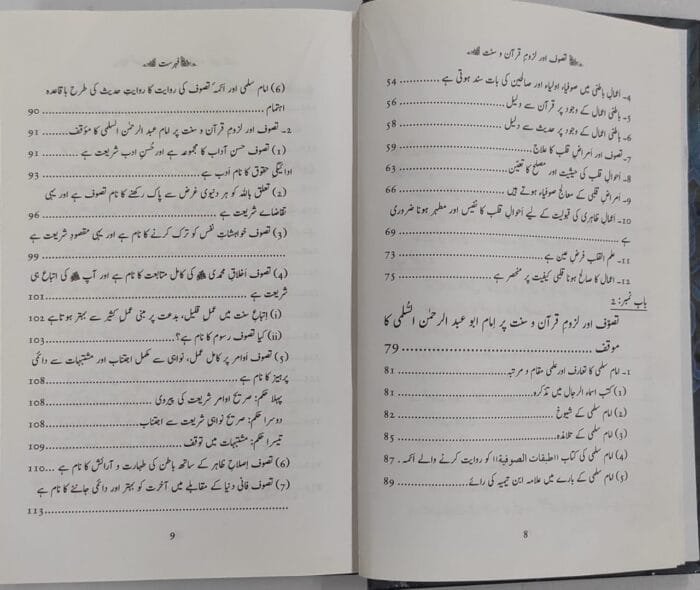 تصوف اور لزومِ قرآن و سنت
۴۔ اعمالِ باطنی میں صوفیاء اولیاء اور صالحین کی بات سند ہوتی ہے ........ 54
۵۔ باطنی اعمال کے وجود پر قرآن سے دلیل ........ 56
۶۔ باطنی اعمال کے وجود پر حدیث سے دلیل ........ 58
۷۔ تصوف اور امراضِ قلب کا علاج ........ 59
۸۔ احوالِ قلب کی حیثیت اور مصلح کا تعین ........ 63
۹۔ امراضِ قلبی کے معالج صوفیاء ہوتے ہیں ........ 66
۱۰۔ اعمالِ ظاہری کی قبولیت کے لیے احوالِ قلب کا نفیس اور مطہر ہونا ضروری
ہے ........ 69
۱۱۔ علم القلب فرضِ عین ہے ........ 73
۱۲۔ اعمال کا صالح ہونا قلبی کیفیت پر منحصر ہے ........ 75
باب نمبر: 2
تصوف اور لزومِ قرآن و سنت پر امام ابو عبد الرحمٰن السُلمی کا
موقف ........ 79
۱۔ امام سلمی کا تعارف اور علمی مقام و مرتبہ ........ 81
(۱) کتب اسماء الرجال میں تذکرہ ........ 81
(۲) امام سلمی کے شیوخ ........ 82
(۳) امام سلمی کے تلامذہ ........ 85
(۴) امام سلمی کی کتاب ((طبقات الصوفیۃ)) کو روایت کرنے والے ائمہ . 87
(۵) امام سلمی کے بارے میں علامہ ابن تیمیہ کی رائے ........ 89
8
فہرست
(۶) امام سلمی اور ائمہ تصوف کی روایت کا روایتِ حدیث کی طرح باقاعدہ
اہتمام ........ 90
۲۔ تصوف اور لزومِ قرآن و سنت پر امام عبد الرحمٰن السلمی کا مؤقف ........ 91
(۱) تصوف حسنِ آداب کا مجموعہ ہے اور حُسنِ ادب شریعت ہے ........ 91
ادائیگی حقوق کا نام ادب ہے ........ 93
(۲) تعلق باللہ کو ہر دنیوی غرض سے پاک رکھنے کا نام تصوف ہے اور یہی
تقاضائے شریعت ہے ........ 96
(۳) تصوف خواہشاتِ نفس کو ترک کرنے کا نام ہے اور یہی مقصودِ شریعت ہے
........ 99
(۴) تصوف اخلاقِ محمدی ﷺ کی کامل متابعت کا نام ہے اور آپ ﷺ کی اتباع ہی
شریعت ہے ........ 101
(i) اتباعِ سنت میں عمل قلیل، بدعت پر مبنی عمل کثیر سے بہتر ہوتا ہے 102
(ii) کیا تصوف رسوم کا نام ہے؟ ........ 103
(۵) تصوف اوامر پر کامل عمل، نواہی سے مکمل اجتناب اور مشتبہات سے دائمی
پرہیز کا نام ہے ........ 108
پہلا حکم: صریح اوامرِ شریعت کی پیروی ........ 108
دوسرا حکم: صریح نواہی شریعت سے اجتناب ........ 108
تیسرا حکم: مشتبہات میں توقف ........ 109
(۶) تصوف اصلاحِ ظاہر کے ساتھ باطن کی طہارت و آرائش کا نام ہے ... 110
(۷) تصوف فانی دنیا کے مقابلے میں آخرت کو بہتر اور دائمی جاننے کا نام ہے
........ 113
9